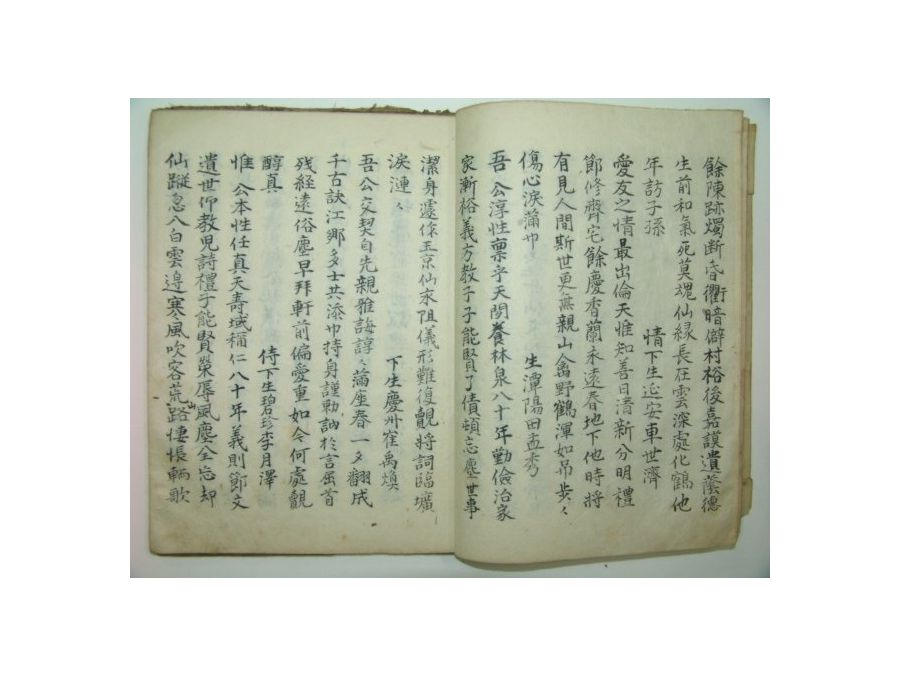 餘陳跡燭断昏衢暗僻村裕後嘉謨遺蔭德
生前和氣死莫媿仙緣長在雲深處化鶴他
年訪子孫 情下生延安車世濟
愛友之情最出倫天惟知善日清新分明禮
節修齊宅餘慶香蘭永遠春地下他時將
有見人間斯世更無親山禽野鶴渾如吊步々
傷心淚滿巾 生潭陽田孟秀
吾公淳性稟乎天閒養林泉八十年勤儉治家
家漸裕義方教子子能賢了債頓忘塵世事
潔身遽作玉京仙永阻儀形難復覩將詞臨壙
淚漣々 下生慶州崔禹煥
吾公交契自先親雅誨諄々滿座春一夕翻成
千古訣江鄉多士共添巾持身謹勅訥於言屈首
残経遠俗塵早拜軒前偏愛重如今何處覩
醇真 侍下生碧珍李月澤
惟公本性任真天壽域稱仁八十年義則節文
遺世仰教児詩禮子能賢榮辱風塵全忘却
仙蹤忽入白雲邊寒風吹客荒山路悽悵輀歌